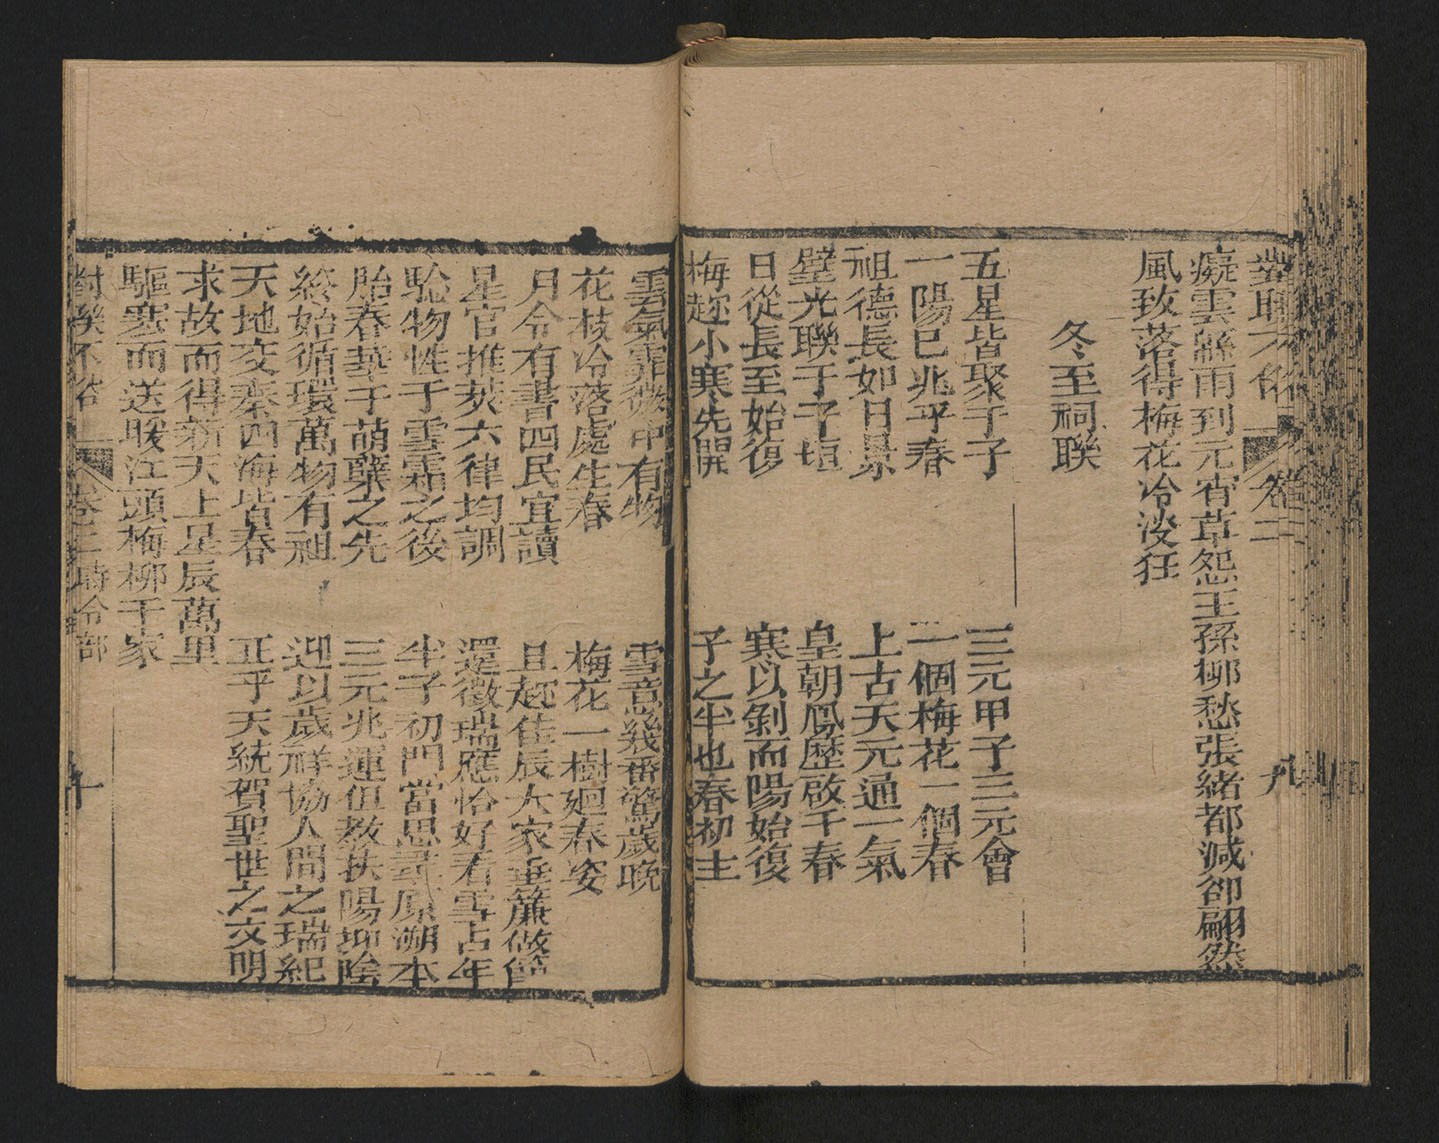 對聯不俗 卷二 九
癡雲絲雨到元宵草怨王孫柳愁張緒都減卻翩然
風致落得梅花冷淡狂
冬至祠聯
五星皆聚于子 三元甲子三元會
一陽已兆乎春 一個梅花一個春
祖德長如日景 上古天元通一氣
璧光聯于子垣 皇朝鳳歷啟千春
日從長至始復 寒以剝而陽始復
梅趂小寒先開 子之半也春初生
雲氣霏微中有物 雪意幾番驚歲晚
花枝冷落處生春 梅花一樹廻春姿
月令有書四民宜讀 且趂佳辰大家垂簾做
星官推筴六律均調 還徵瑞應恰好看雲占年
騐物性于雲霜之後 半子初門當思尋原溯本
胎春華于萌孽之先 三元兆運伹教扶陽抑陰
終始循環萬物有祖 迎以歲祥協人間之瑞紀
天地交泰四海皆春 正乎天統賀聖世之文明
求故而得新天上星辰萬里
驅寒而送暖江頭梅柳千家
對聯不俗 卷二時令部 十